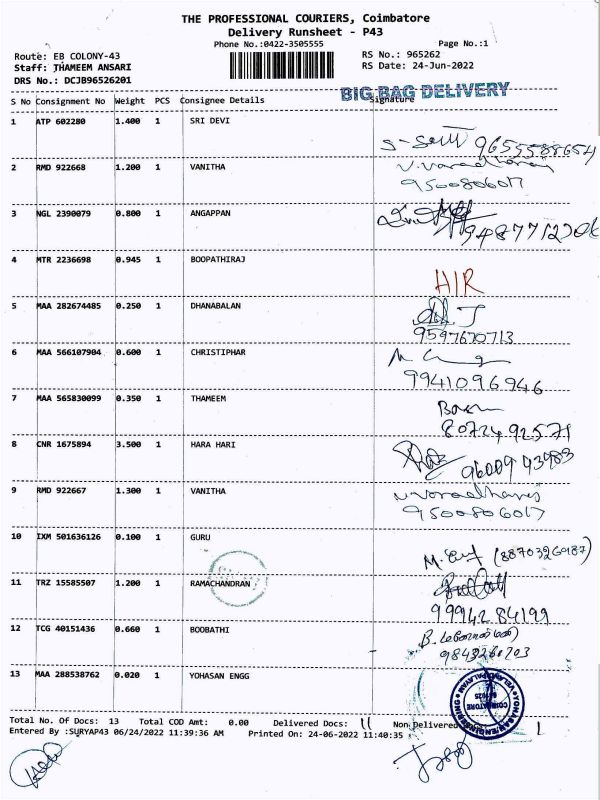 THE PROFESSIONAL COURIERS, Coimbatore
Delivery Runsheet - P43
Phone No.:0422-3505555 Page No.:1
Route: EB COLONY-43 RS No.: 965262
Staff: THAMEEM ANSARI RS Date: 24-Jun-2022
DRS No.: DCJB96526201
BIG BAG DELIVERY
S No Consignment No Weight PCS Consignee Details Signature
1 ATP 602280 1.400 1 SRI DEVI
9655588654
2 RMD 922668 1.200 1 VANITHA
9500806017
3 NGL 2390079 0.800 1 ANGAPPAN
9487712206
4 MTR 2236698 0.945 1 BOOPATHIRAJ
H/R
5 MAA 282674485 0.250 1 DHANABALAN
9597670713
6 MAA 566107904 0.600 1 CHRISTIPHAR
9941096946
7 MAA 565830099 0.350 1 THAMEEM
8072492571
8 CNR 1675894 3.500 1 HARA HARI
9600943983
9 RMD 922667 1.300 1 VANITHA
9500806017
10 IXM 501636126 0.100 1 GURU
(8870326987)
11 TRZ 15585507 1.200 1 RAMACHANDRAN
9994284199
12 TCG 40151436 0.660 1 BOOBATHI
9843260703
13 MAA 288538762 0.020 1 YOHASAN ENGG
COIMBATORE
Total No. Of Docs: 13 Total COD Amt: 0.00 Delivered Docs: 11 Non Delivered 1
Entered By :SURYAP43 06/24/2022 11:39:36 AM Printed On: 24-06-2022 11:40:35